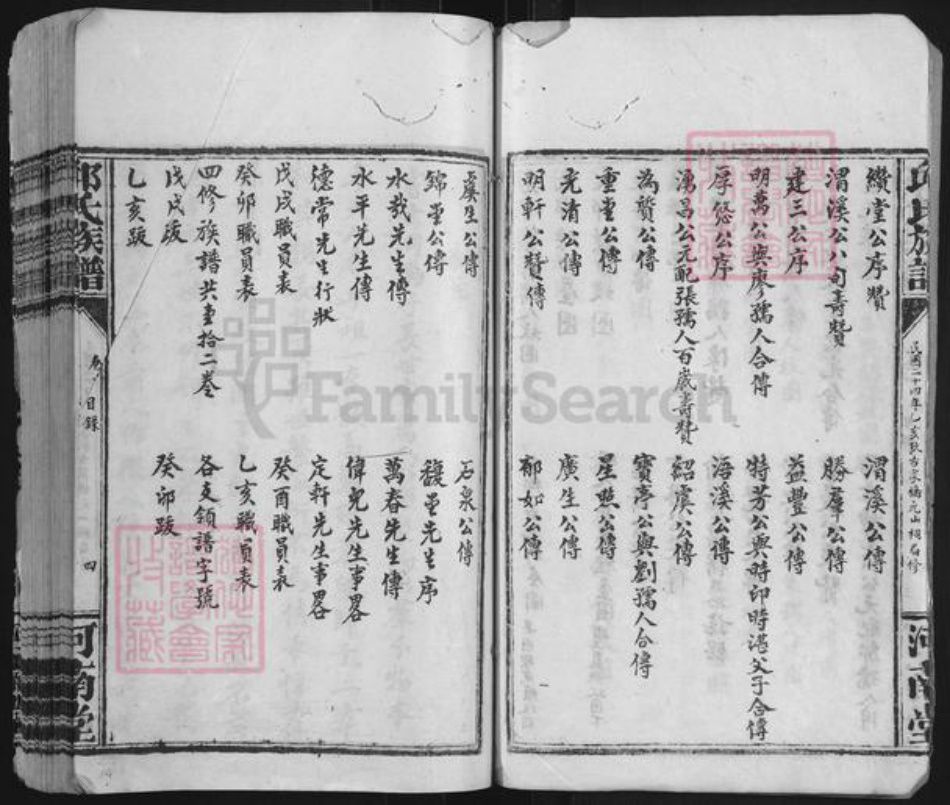 邱氏族譜
民國二十四年乙亥
河南堂
纘堂公序贊
渭溪公傳
渭溪公八旬壽贊
勝羣公傳
建三公序
益豐公傳
明萬公與廖孺人合傳
特芳公與時印時湛父子合傳
厚悠公序
浯溪公傳
湧昌公元配張孺人百歲壽贊
紹虞公傳
為贊公傳
寶亭公與劉孺人合傳
重堂公傳
星照公傳
光清公傳
廣生公傳
明軒公贊傳
郁如公傳
虞生公傳
石泉公傳
錦堂公傳
馥堂先生序
永哉先生傳
萬春先生傳
水平先生傳
偉兒先生事畧
德常先生行狀
定軒先生事畧
戊戌職員表
癸酉職員表
癸卯職員表
乙亥職員表
四修族譜共壹拾二卷
各支領譜字號
戊戌跋
癸卯跋
乙亥跋
邱氏族譜
目錄
四
河南堂
FamilySearch